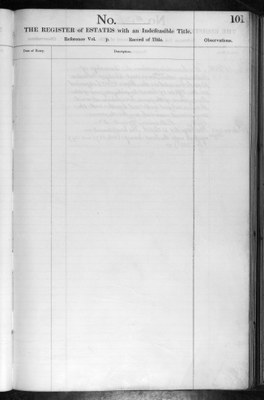 No.
101
THE REGISTER of ESTATES with an Indefeasible Title.
Reference Vol. p. Record of Title.
Observations.
Date of Entry.
Description.